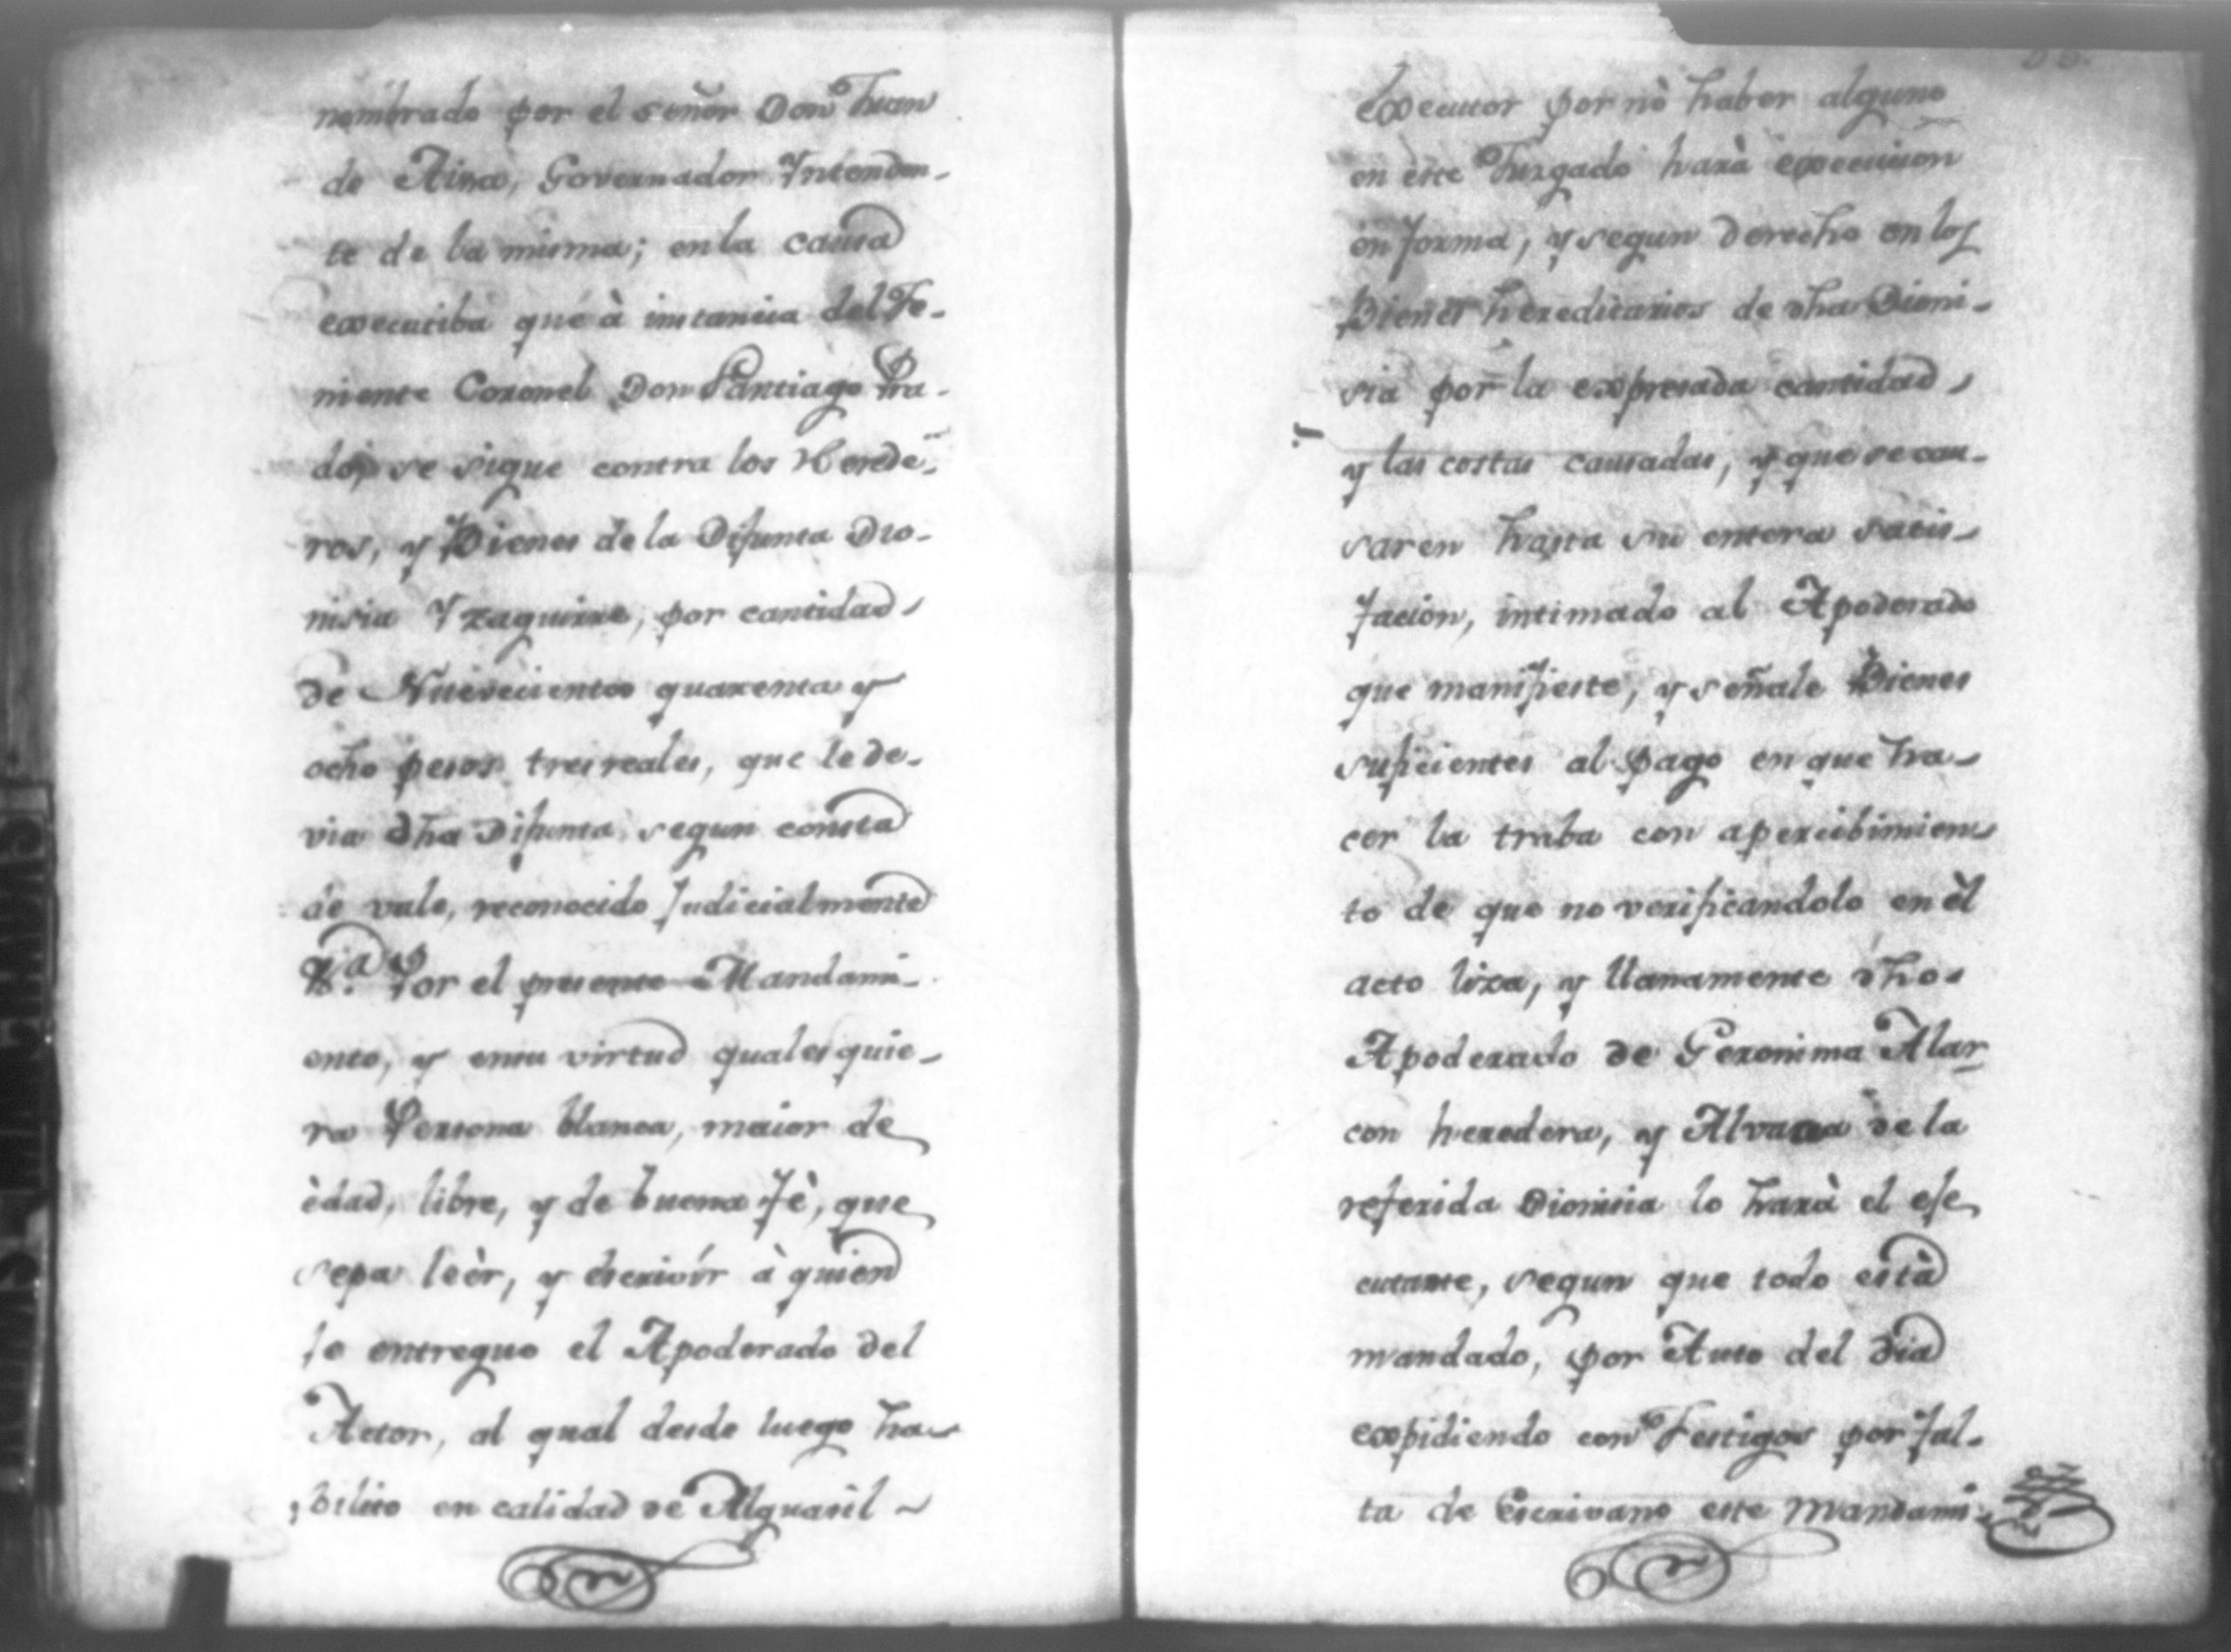 nombrado por el señor Don Juan
de Pina, Governador Yntenden-
te de la misma; en la causa
executiba que à instancia del Te-
niente Coronel Don Santiago Pra-
do, se sigue contra los Herede-
ros, y Bienes de la Difunta Dio-
nisia Yzaguirre, por cantidad
de Nuevecientos quarenta y
ocho pesos tres reales, que le de-
via dha Difunta segun consta
de vale, reconocido Judicialmente
Por el presente Mandami-
ento, y en su virtud qualesquie-
ra Persona blanca, maior de
èdad, libre, y de buena fè, que
sepa leèr, y escrivír à quien
se entregue el Apoderado del
Actor, al qual desde luego ha-
bilito en calidad de Alguasil
executor por nò haber alguno
en este Juzgado harà execucion
en forma, y segun derecho en los
Bienes hereditarios de dha Dioni-
sia por la expresada cantidad
y las costas causadas, y que se cau-
saren hasta su entera satis-
facion, intimado al Apoderado
que manifieste, y señale Bienes
suficientes al pago en que ha-
cer la traba con apercibimien-
to de que no verificandolo en èl
acto liza, y llanamente dho
Apoderado de Geronima Alar-
con heredera, y Alvacea de la
referida Dionisia lo harà el ese-
cutante, segun que todo està
mandado, por Auto del dia
expidiendo con Testigos por fal-
ta de Escrivano este Mandami-